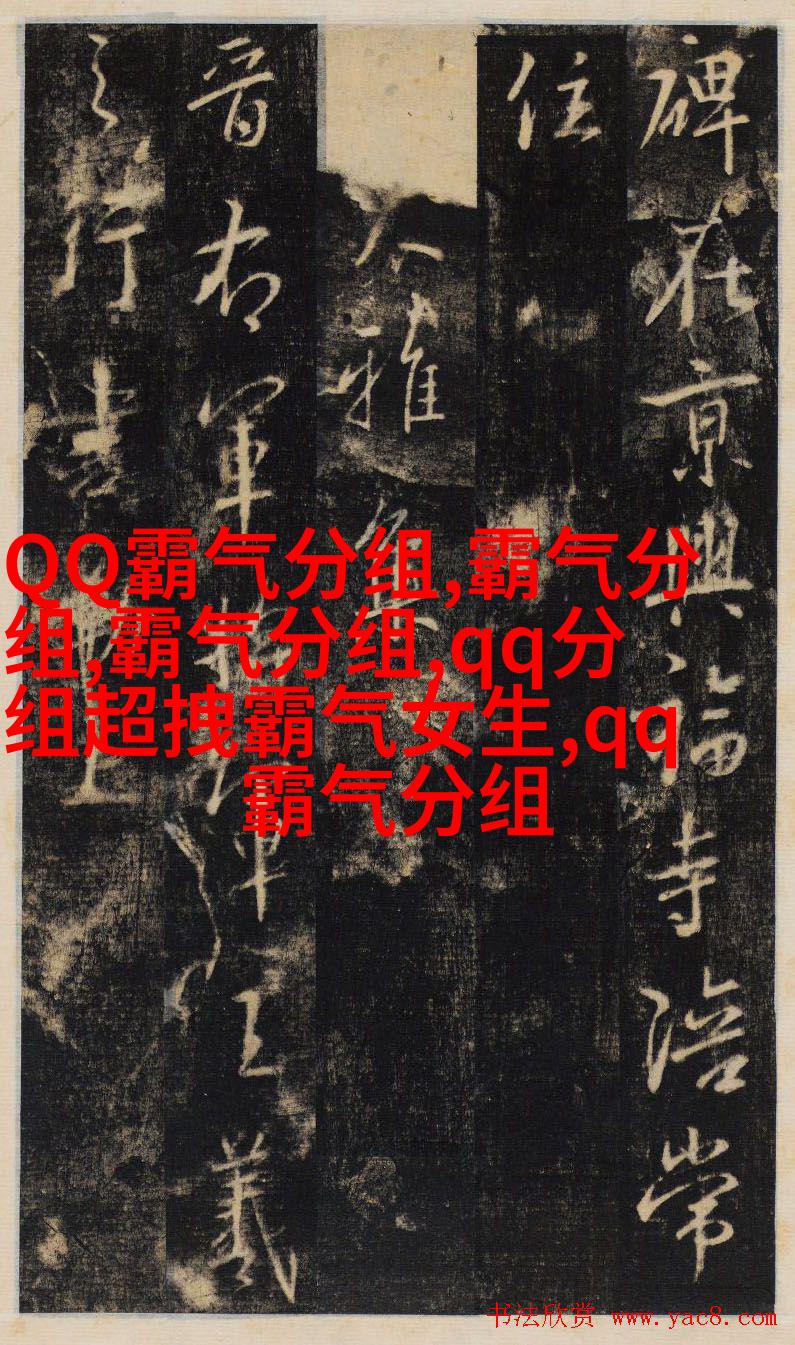 碑在京興福寺陪常
住
大雅集
晋右軍將軍王羲
之行書勒上
QQ霸气分组,霸气分
组,霸气分组,qq分
组超拽霸气女生,qq
霸气分组
书法欣赏 www.yac8.com